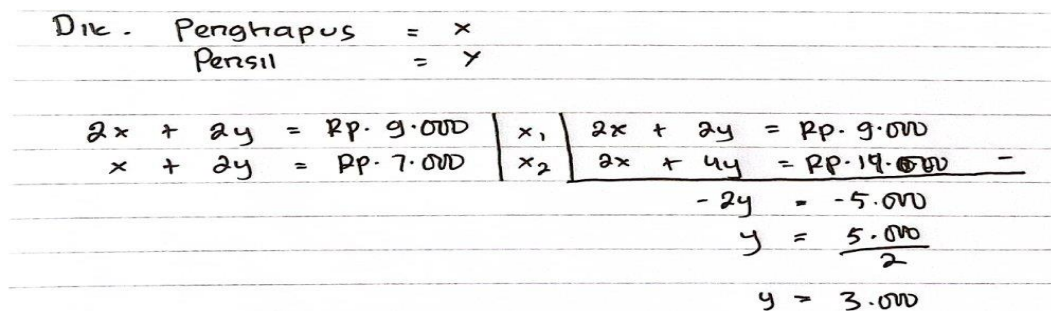 Dik. Penghapus = x
Pensil = y
2x + 2y = Rp. 9.000 | x1 | 2x + 2y = Rp. 9.000
x + 2y = Rp. 7.000 | x2 | 2x + 4y = Rp. 14.000 -
-2y = -5.000
y = 5.000
2
y = 3.000